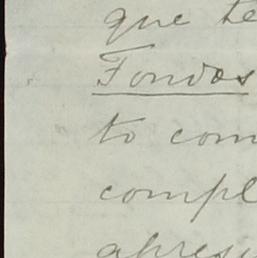 que te
Fondos
to com
compl
apresi